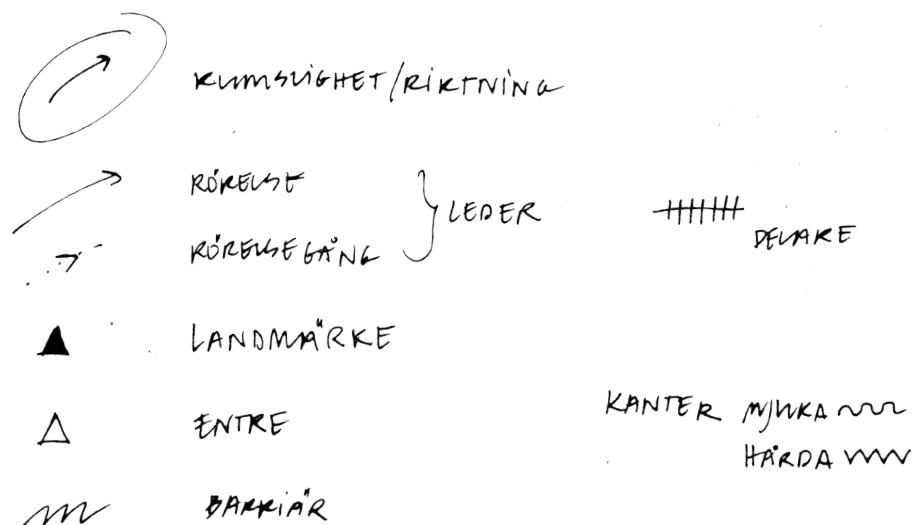 RUMSLIGHET/RIKTNING
RÖRELSE
RÖRELSE GÅNG
LEDER
DELARE
LANDMÄRKE
ENTRE
KANTER MJUKA
HÅRDA
BARRIÄR